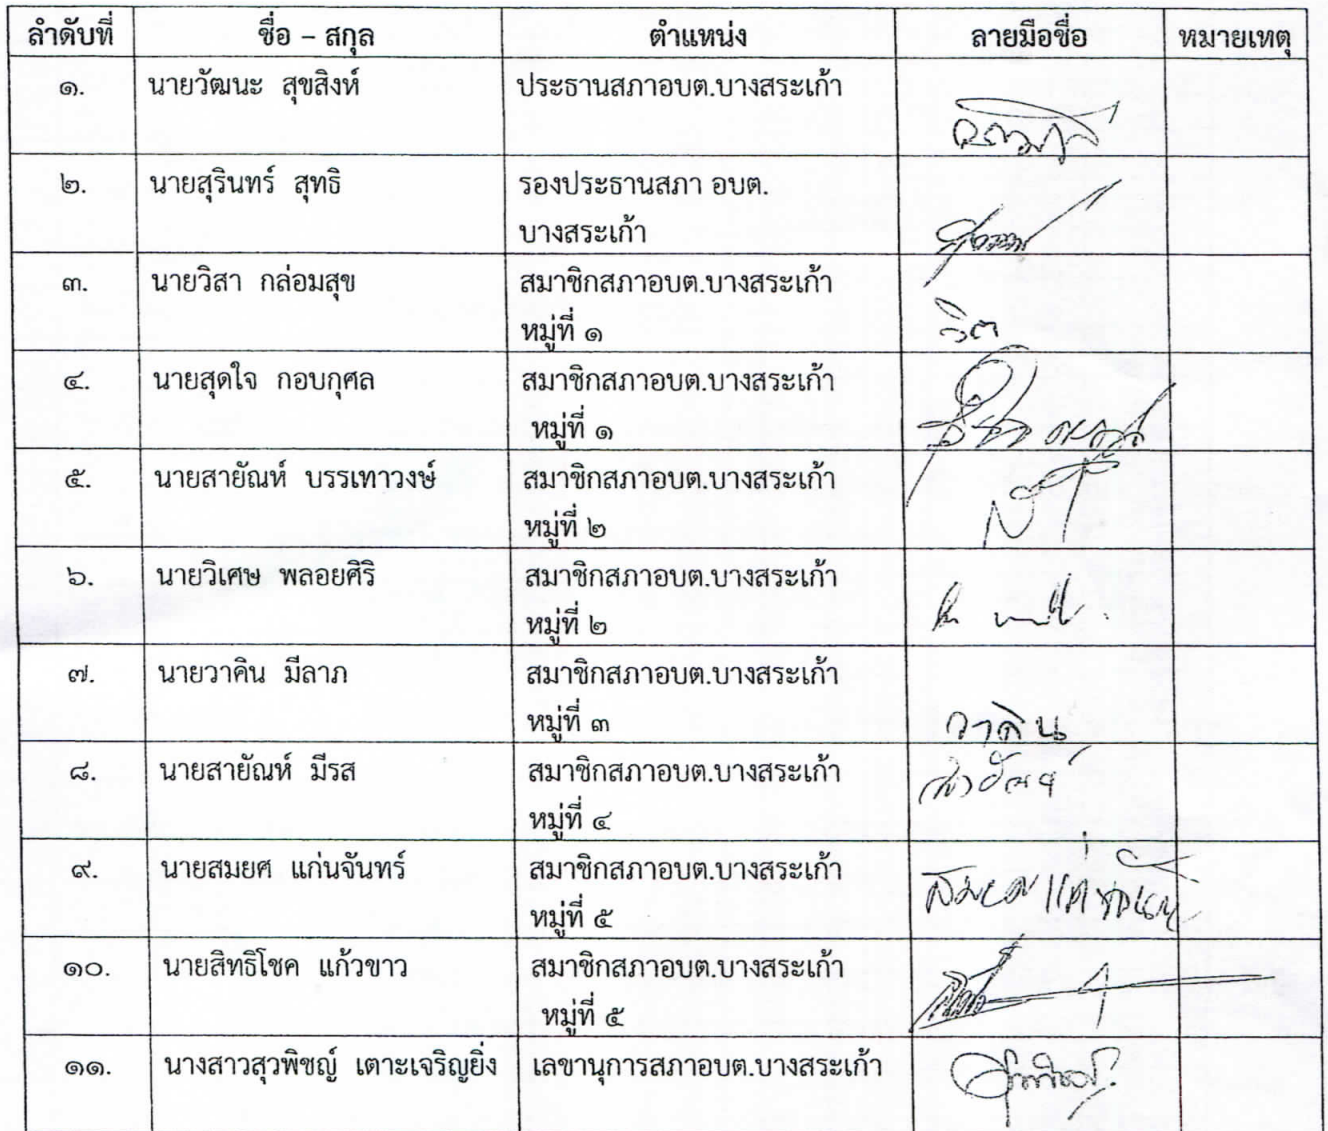 ลำดับที่ ชื่อ – สกุล ตำแหน่ง ลายมือชื่อ หมายเหตุ
๑. นายวัฒนะ สุขสิงห์ ประธานสภาอบต.บางสระเก้า
๒. นายสุรินทร์ สุทธิ รองประธานสภา อบต.
บางสระเก้า
๓. นายวิสา กล่อมสุข สมาชิกสภาอบต.บางสระเก้า
หมู่ที่ ๑
๔. นายสุดใจ กอบกุศล สมาชิกสภาอบต.บางสระเก้า
หมู่ที่ ๑
๕. นายสายัณห์ บรรเทาวงษ์ สมาชิกสภาอบต.บางสระเก้า
หมู่ที่ ๒
๖. นายวิเศษ พลอยศิริ สมาชิกสภาอบต.บางสระเก้า
หมู่ที่ ๒
๗. นายวาคิน มีลาภ สมาชิกสภาอบต.บางสระเก้า
หมู่ที่ ๓ วาคิน
๘. นายสายัณห์ มีรส สมาชิกสภาอบต.บางสระเก้า
หมู่ที่ ๔
๙. นายสมยศ แก่นจันทร์ สมาชิกสภาอบต.บางสระเก้า
หมู่ที่ ๕
๑๐. นายสิทธิโชค แก้วขาว สมาชิกสภาอบต.บางสระเก้า
หมู่ที่ ๕
๑๑. นางสาวสุวพิชญ์ เตาะเจริญยิ่ง เลขานุการสภาอบต.บางสระเก้า